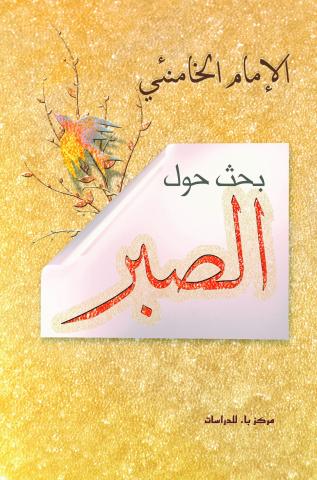 الإمام الخامنئي
بحث حول
الصبر
مركز باء للدراسات